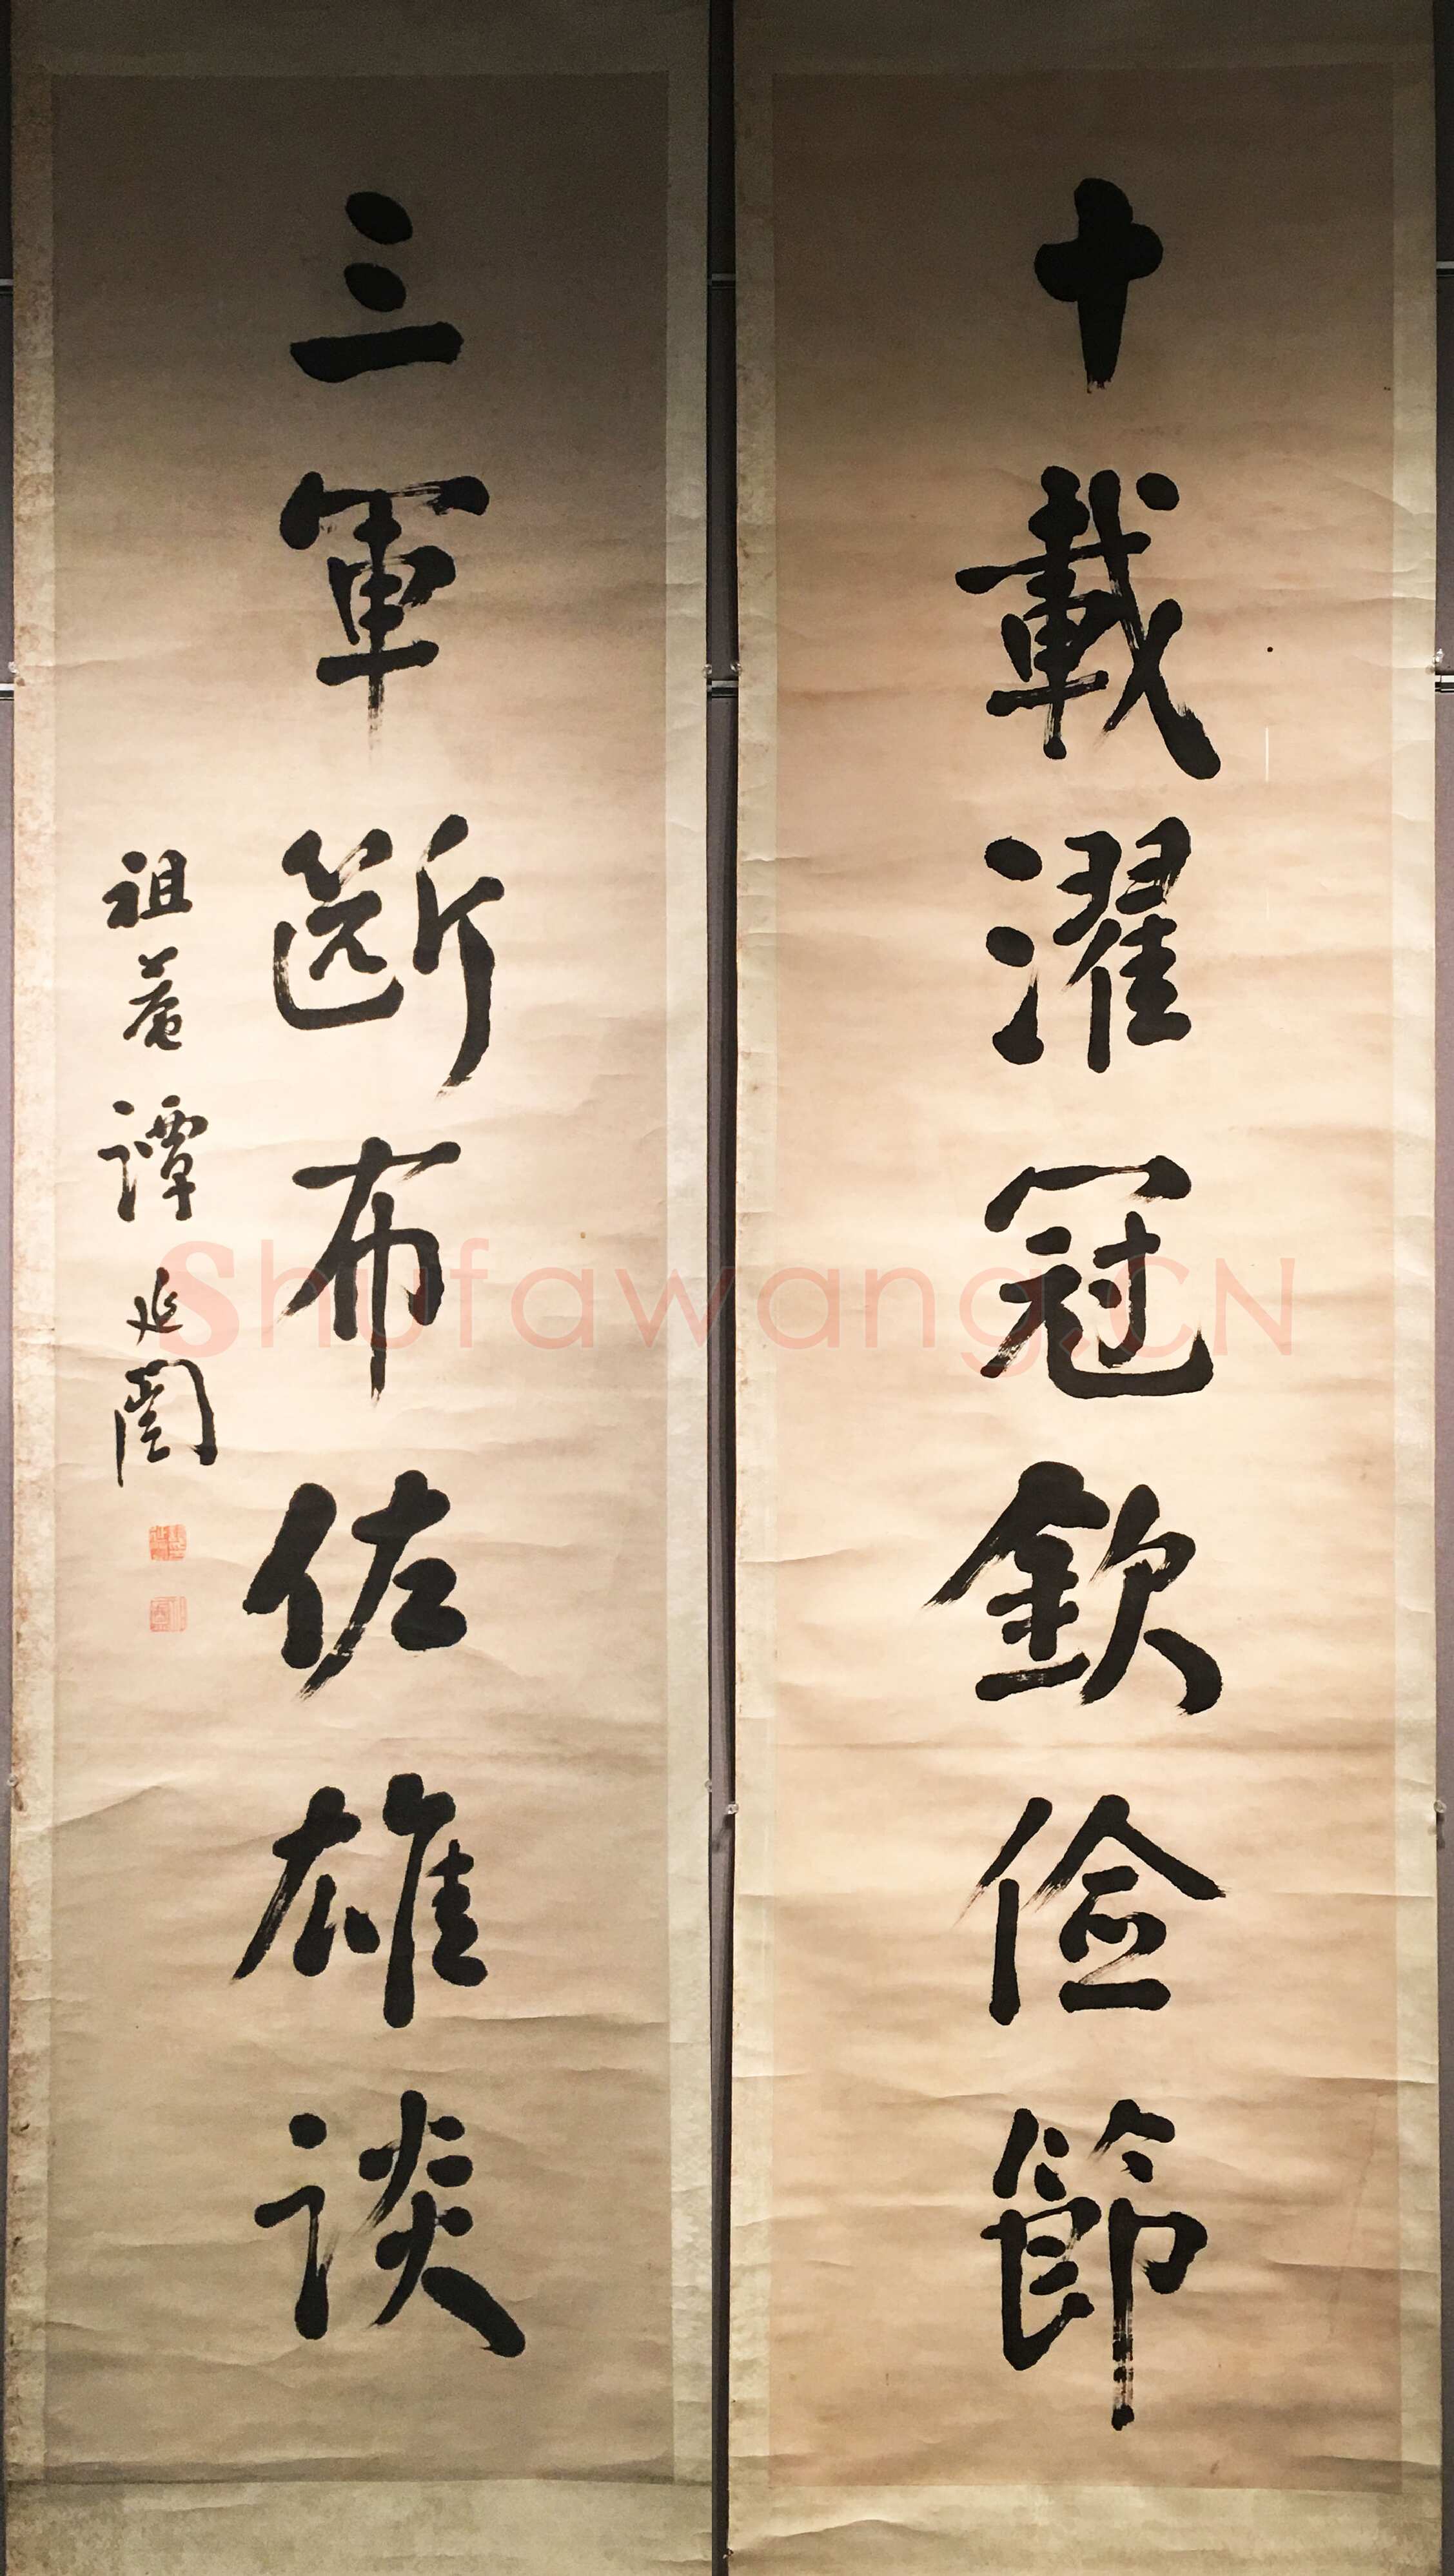 十載濯冠欽儉節
三軍斷布佐雄談
祖菴譚延闓
Shufawang.CN